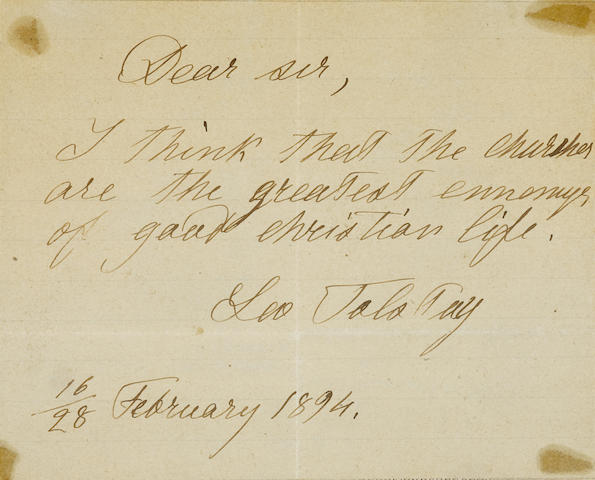 Dear sir,
I think that the churches
are the greatest ennemys
of good christian life.
Leo Tolstoy
16/28 February 1894.